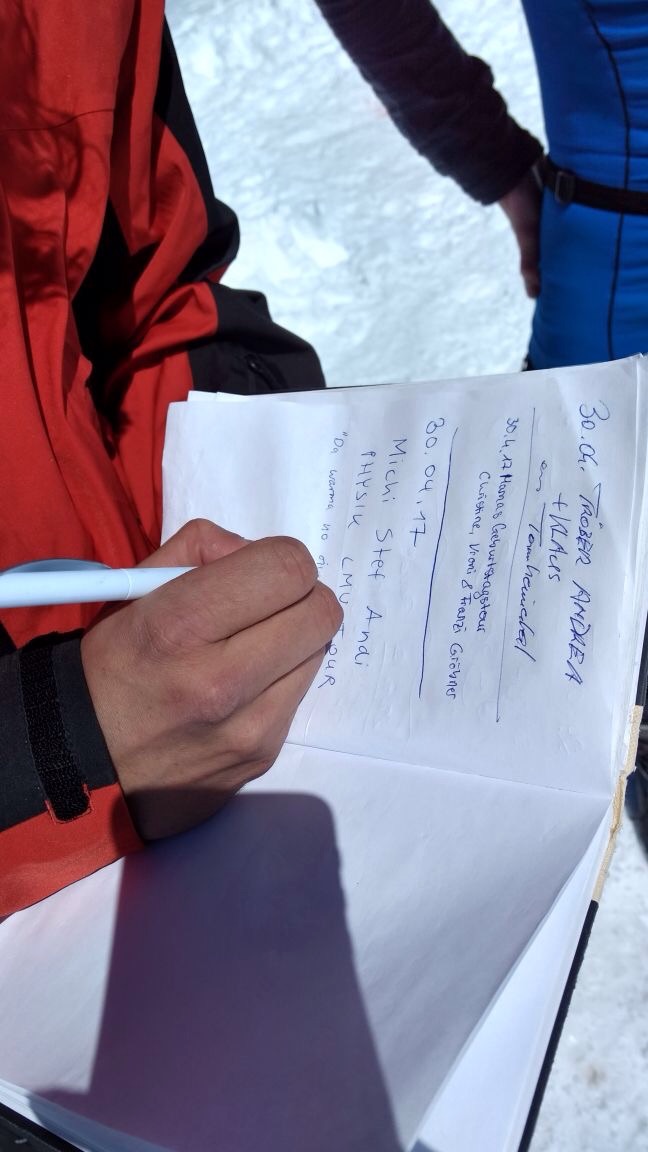 30.04. TRÖBER ANDREA
+ KLAUS
aus Tannheim
30.4.17 Mamas Geburtstagstour
Christine, Vroni & Franzi Gröbner
30.04.17
Michi Stef Andi
PHYSIK LMU TOUR
"Da warma no